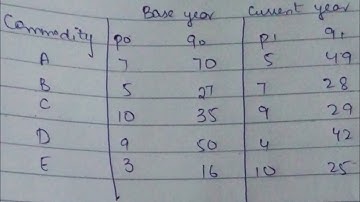 Base year Current year
Commodity p0 q0 p1 q1
A 7 70 5 49
B 5 27 7 28
C 10 35 9 29
D 9 50 4 42
E 3 16 10 25